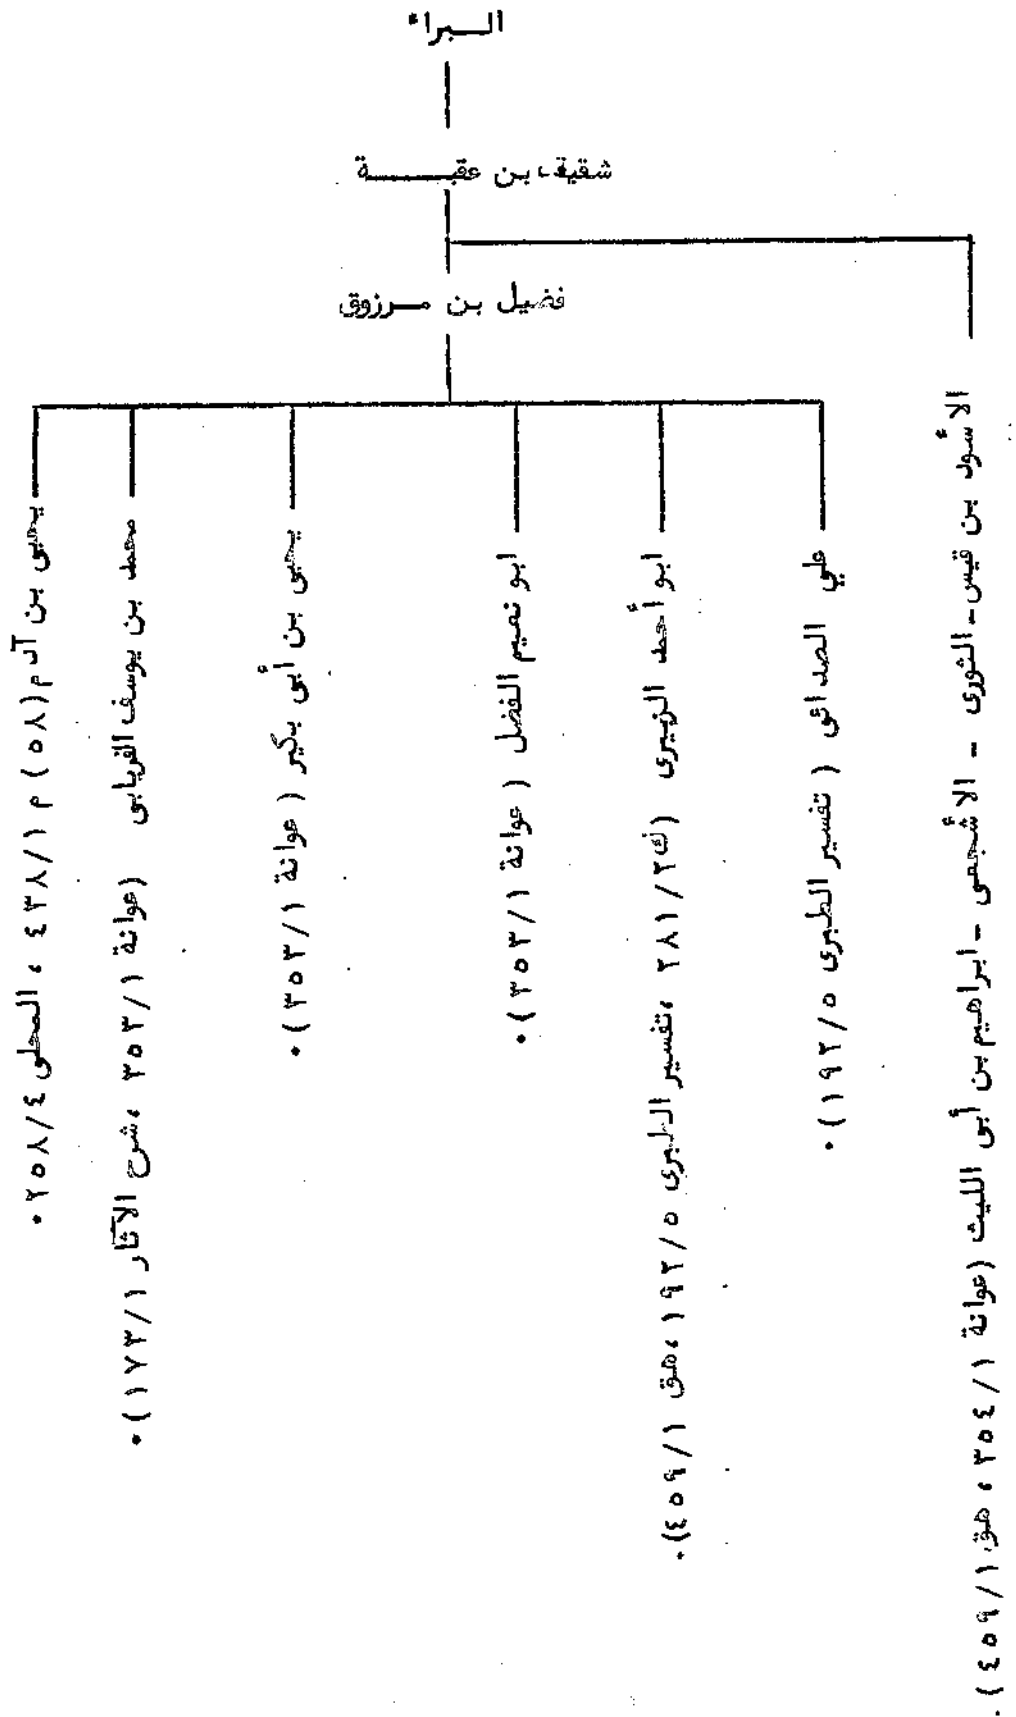 البراء
شقيق بن عقبة
فضيل بن مرزوق
الأسود بن قيس - الثورى - الأشجعى - ابراهيم بن أبى الليث (عوانة ٣٥٤/١ ، هق ٤٥٩/١).
علي الصدائى ( تفسير الطبرى ١٩٢/٥).
ابو أحمد الزبيرى (ك ٢٨١/٢ ، تفسير الطبرى ١٩٢/٥ ، هق ٤٥٩/١).
ابو نعيم الفضل ( عوانة ٣٥٣/١).
يحيى بن أبى بكير ( عوانة ٣٥٣/١).
محمد بن يوسف الفريابى (عوانة ٣٥٣/١ ، شرح الآثار ١٧٣/١).
يحيى بن آدم (٥٨) م ٤٣٨/١ ، المحلى ٢٥٨/٤.